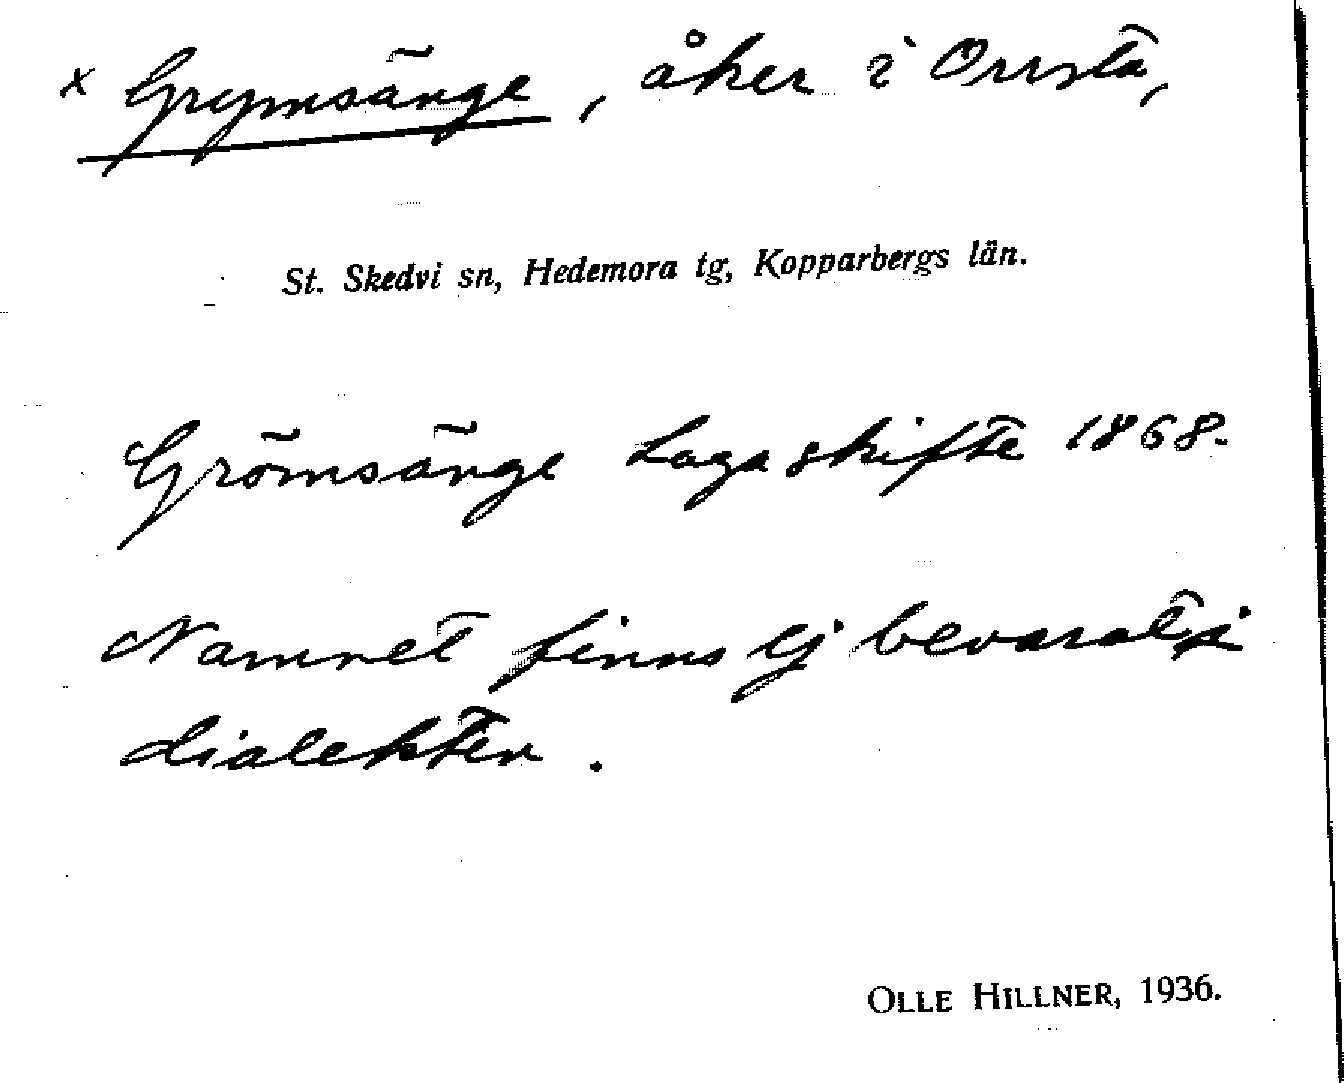 x Grymsänge, åker i Orrsta,
St. Skedvi sn, Hedemora tg, Kopparbergs län.
Grömsänge Laga skifte 1868.
Namnet finns ej bevarat i
dialekten.
OLLE HILLNER, 1936.